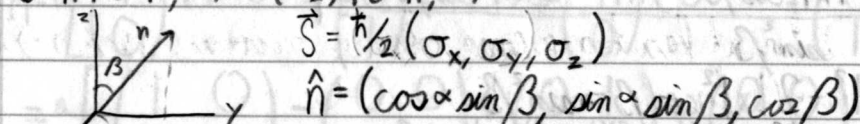 z n S⃗ = ħ/2 (σx, σy, σz)
β
y n̂ = (cos α sin β, sin α sin β, cos β)